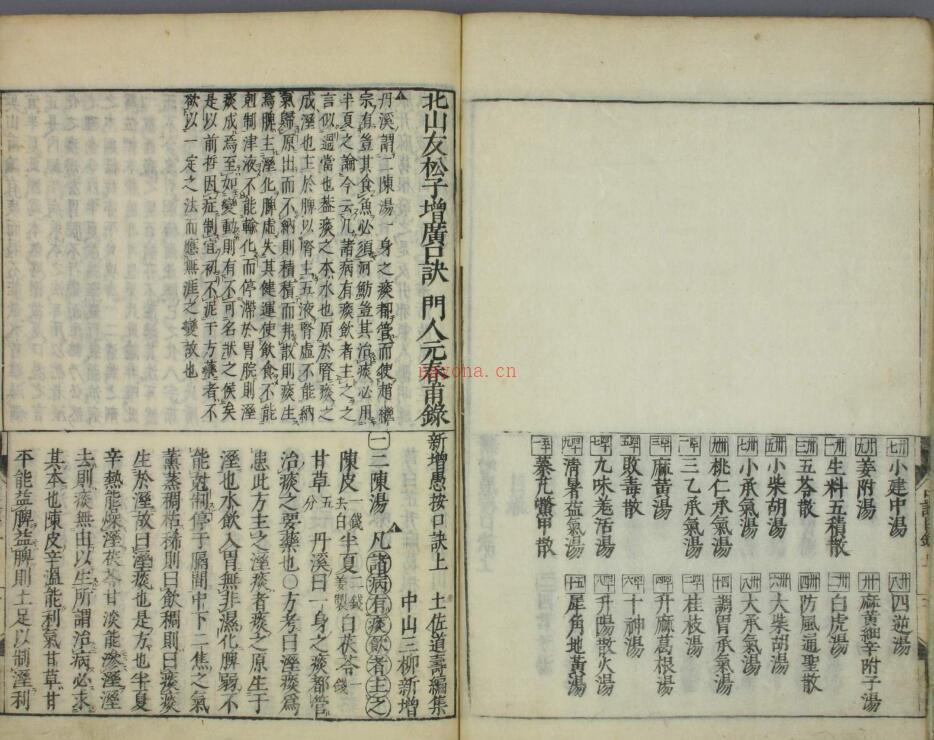 小建中湯 四逆湯
姜附湯 麻黃細辛附子湯
生料五積散 白虎湯
五苓散 防風通聖散
小柴胡湯 大柴胡湯
小承氣湯 大承氣湯
桃仁承氣湯 調胃承氣湯
三乙承氣湯 桂枝湯
麻黃湯 升麻葛根湯
敗毒散 十神湯
九味羗活湯 升陽散火湯
清暑益氣湯 犀角地黃湯
秦艽鱉甲散
北山友松子增廣口訣 門人元春甫錄
丹溪謂二陳湯一身之痰都管而使趙繼
宗有豈其食魚必須河魴豈其治痰必用
半夏之論今云凡諸病有痰飲者主之之
言似選當也葢痰之本水也原於腎痰之
成溼也主於脾以腎主五液腎虛不能納
氣歸原出而不納則積積而弗散則痰生
焉脾主溼化脾虛失其健運使飲食不能
剋制津液不能輸化而停滯於胃脘則溼
痰成焉至如變動則有不可名狀之候矣
是以前哲因症制宜初不泥于方藥者不
欲以一定之法而應無涯之變故也
新增愚按口訣上 土佐道壽編集
中山三柳新增
一二陳湯 凡諸病有痰飲者主之
陳皮一錢去白半夏二錢姜製白茯苓一錢
甘草五分 丹溪曰一身之痰都管
治痰之要藥也○方考曰溼痰爲
患此方主之溼痰者痰之原生于
溼也水飲入胃無非濕化脾弱不
能剋制停于膈間中下二焦之氣
薰蒸稠粘稀則曰飲稠則曰痰痰
生於溼故曰溼痰也是方也半夏
辛熱能燥溼茯苓甘淡能滲溼溼
去則痰無由以生所謂治病必求
其本也陳皮辛溫能利氣甘草甘
平能益脾益脾則土足以制溼利
nayona.cn